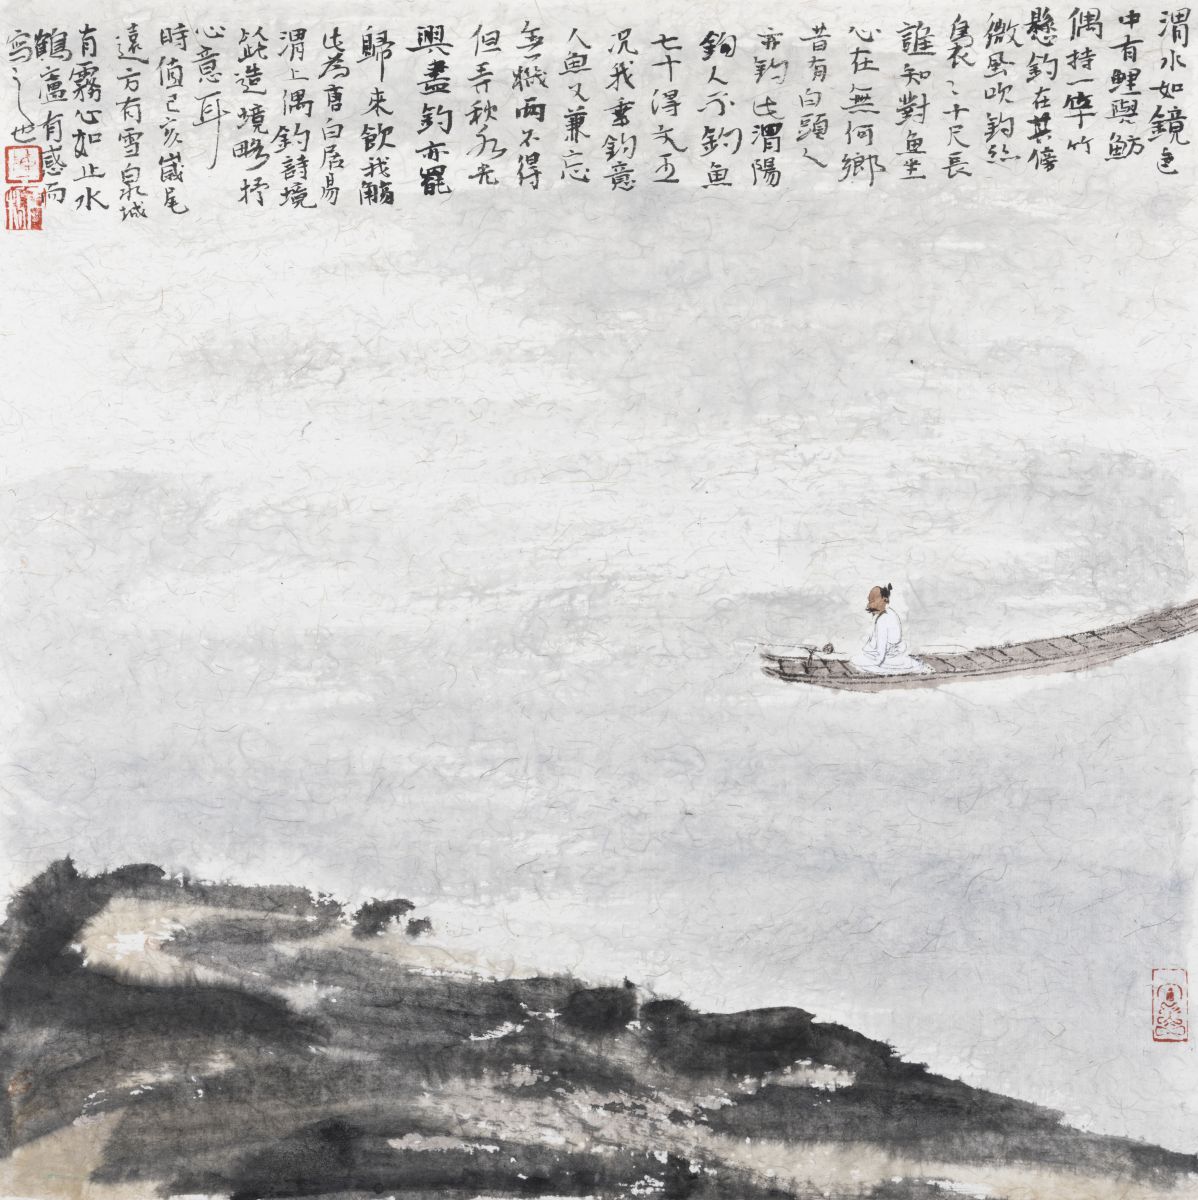 渭水如鏡色
中有鯉與魴
偶持一竿竹
懸釣在其傍
微風吹釣絲
裊〻十尺長
誰知對魚坐
心在無何鄉
昔有白頭人
亦釣此渭陽
釣人不釣魚
七十得文王
況我垂釣意
人魚又兼忘
無機兩不得
但弄秋水光
興盡釣亦罷
歸來飲我觴
此為唐白居易
渭上偶釣詩境
以此造境略抒
心意耳
時值己亥歲尾
遠方有雪泉城
有霧心如止水
鶴廬有感而
寫之也